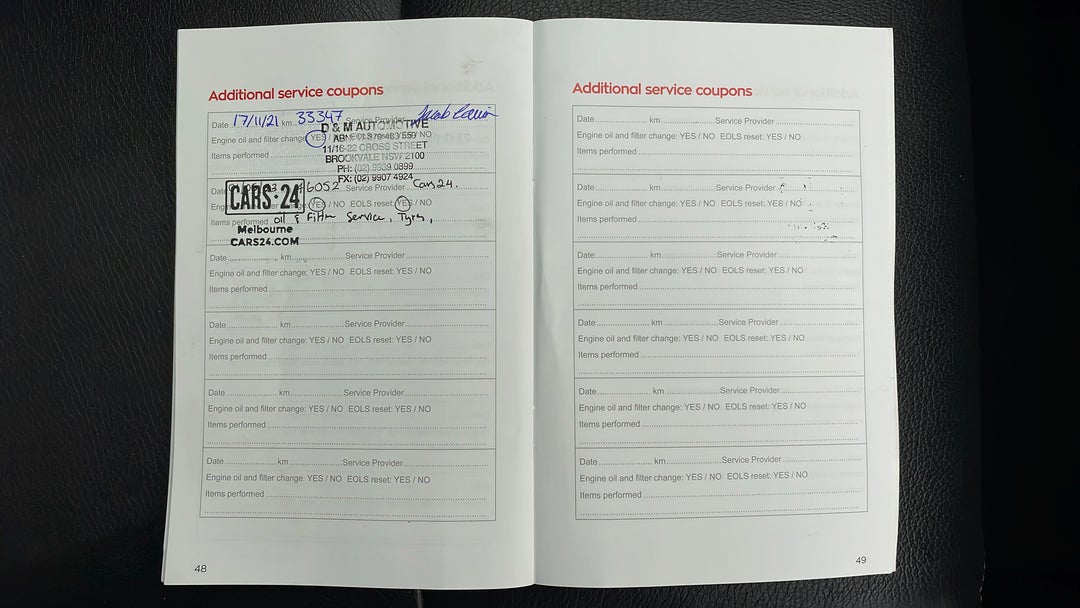 Additional service coupons
Date 17/11/21 km 33347 Service Provider
D & M AUTOMOTIVE
Engine oil and filter change: YES / NO
11/16-22 CROSS STREET
Items performed
BROOKVALE NSW 2100
PH: (02) 9939 0899
FX: (02) 9907 4924
Date 46052 Service Provider Cars 24.
CARS·24
YES / NO EOLS reset: YES / NO
Items performed Oil & Filter Service, Tyres,
Melbourne
CARS24.COM
Date km Service Provider
Engine oil and filter change: YES / NO EOLS reset: YES / NO
Items performed
Date km Service Provider
Engine oil and filter change: YES / NO EOLS reset: YES / NO
Items performed
Date km Service Provider
Engine oil and filter change: YES / NO EOLS reset: YES / NO
Items performed
Date km Service Provider
Engine oil and filter change: YES / NO EOLS reset: YES / NO
Items performed
48
Additional service coupons
Date km Service Provider
Engine oil and filter change: YES / NO EOLS reset: YES / NO
Items performed
Date km Service Provider
Engine oil and filter change: YES / NO EOLS reset: YES / NO
Items performed
Date km Service Provider
Engine oil and filter change: YES / NO EOLS reset: YES / NO
Items performed
Date km Service Provider
Engine oil and filter change: YES / NO EOLS reset: YES / NO
Items performed
Date km Service Provider
Engine oil and filter change: YES / NO EOLS reset: YES / NO
Items performed
Date km Service Provider
Engine oil and filter change: YES / NO EOLS reset: YES / NO
Items performed
49